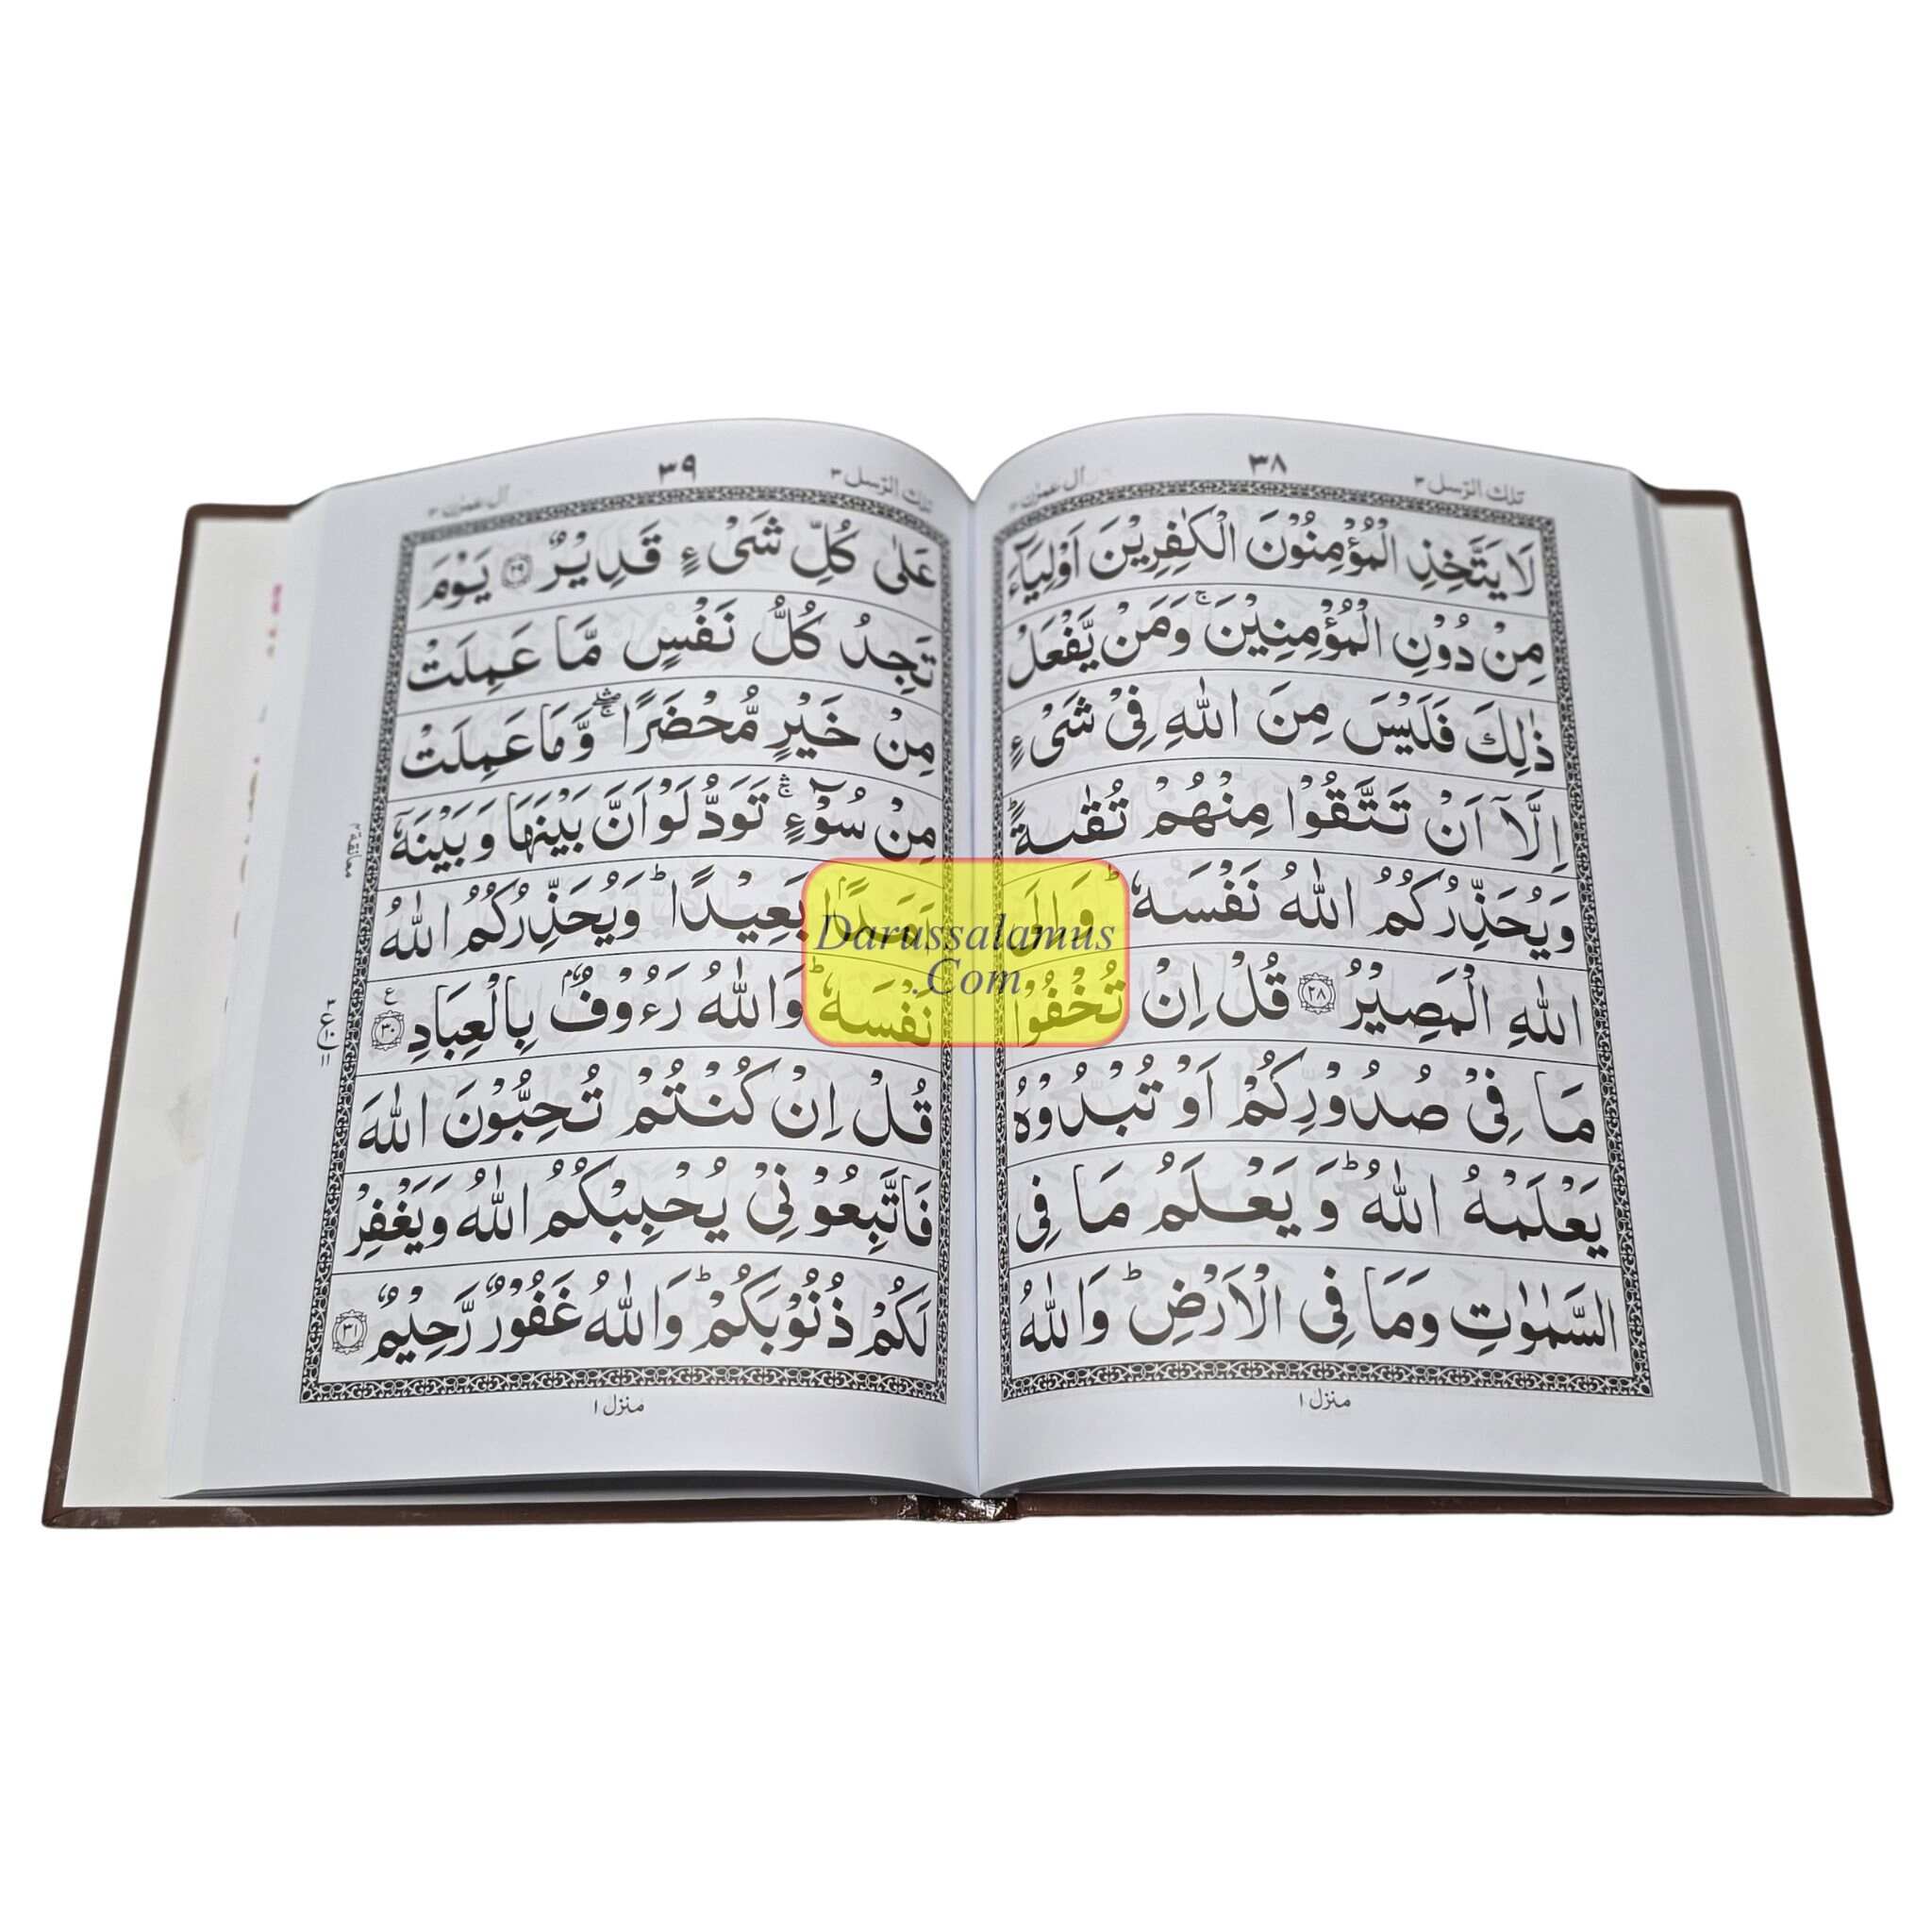 تلك الرسل ٣
٣٨
آل عمرٰن ٣
لَا يَتَّخِذِ الْمُؤْمِنُوْنَ الْكٰفِرِيْنَ اَوْلِيَآءَ
مِنْ دُوْنِ الْمُؤْمِنِيْنَ ۚ وَمَنْ يَّفْعَلْ
ذٰلِكَ فَلَيْسَ مِنَ اللّٰهِ فِيْ شَيْءٍ
اِلَّآ اَنْ تَتَّقُوْا مِنْهُمْ تُقٰىةً ؕ
وَيُحَذِّرُكُمُ اللّٰهُ نَفْسَهٗ ؕ وَاِلَى
اللّٰهِ الْمَصِيْرُ ﴿٢٨﴾ قُلْ اِنْ تُخْفُوْا
مَا فِيْ صُدُوْرِكُمْ اَوْ تُبْدُوْهُ
يَعْلَمْهُ اللّٰهُ ؕ وَيَعْلَمُ مَا فِي
السَّمٰوٰتِ وَمَا فِي الْاَرْضِ ؕ وَاللّٰهُ
منزل ١
تلك الرسل ٣
٣٩
آل عمرٰن ٣
عَلٰى كُلِّ شَيْءٍ قَدِيْرٌ ﴿٢٩﴾ يَوْمَ
تَجِدُ كُلُّ نَفْسٍ مَّا عَمِلَتْ
مِنْ خَيْرٍ مُّحْضَرًا ۛۖۚ وَّمَا عَمِلَتْ
مِنْ سُوْٓءٍ ۛۚ تَوَدُّ لَوْ اَنَّ بَيْنَهَا وَبَيْنَهٗٓ
اَمَدًۢا بَعِيْدًا ؕ وَيُحَذِّرُكُمُ اللّٰهُ
نَفْسَهٗ ؕ وَاللّٰهُ رَءُوْفٌۢ بِالْعِبَادِ ﴿٣٠﴾ ع
قُلْ اِنْ كُنْتُمْ تُحِبُّوْنَ اللّٰهَ
فَاتَّبِعُوْنِيْ يُحْبِبْكُمُ اللّٰهُ وَيَغْفِرْ
لَكُمْ ذُنُوْبَكُمْ ؕ وَاللّٰهُ غَفُوْرٌ رَّحِيْمٌ ﴿٣١﴾
منزل ١
معانقة ٣
٣
ع
١٠
١١
Darussalamus
.Com